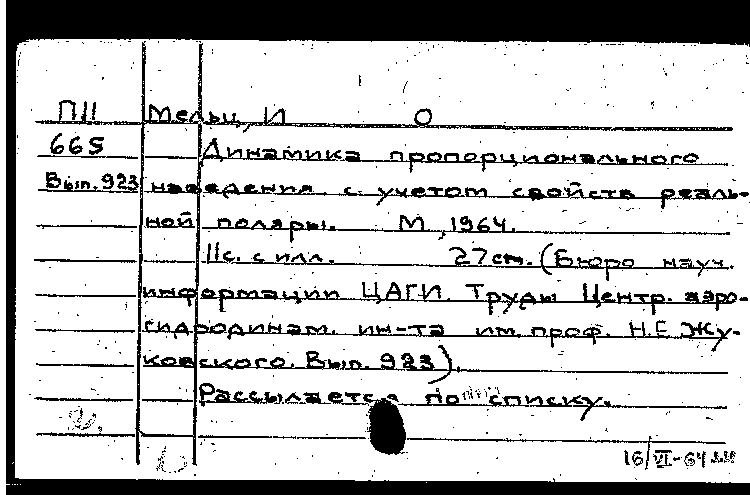 П11 Мельц, И О
665 Динамика пропорционального
Вып. 923 наведения с учетом свойств реаль-
ной поляры. М, 1964.
11с. с илл. 27 см. (Бюро науч.
информации ЦАГИ. Труды Центр. аэро-
гидродинам. ин-та им. проф. Н.Е Жу-
ковского. Вып. 923).
Рассылается по списку.
16/VI-64